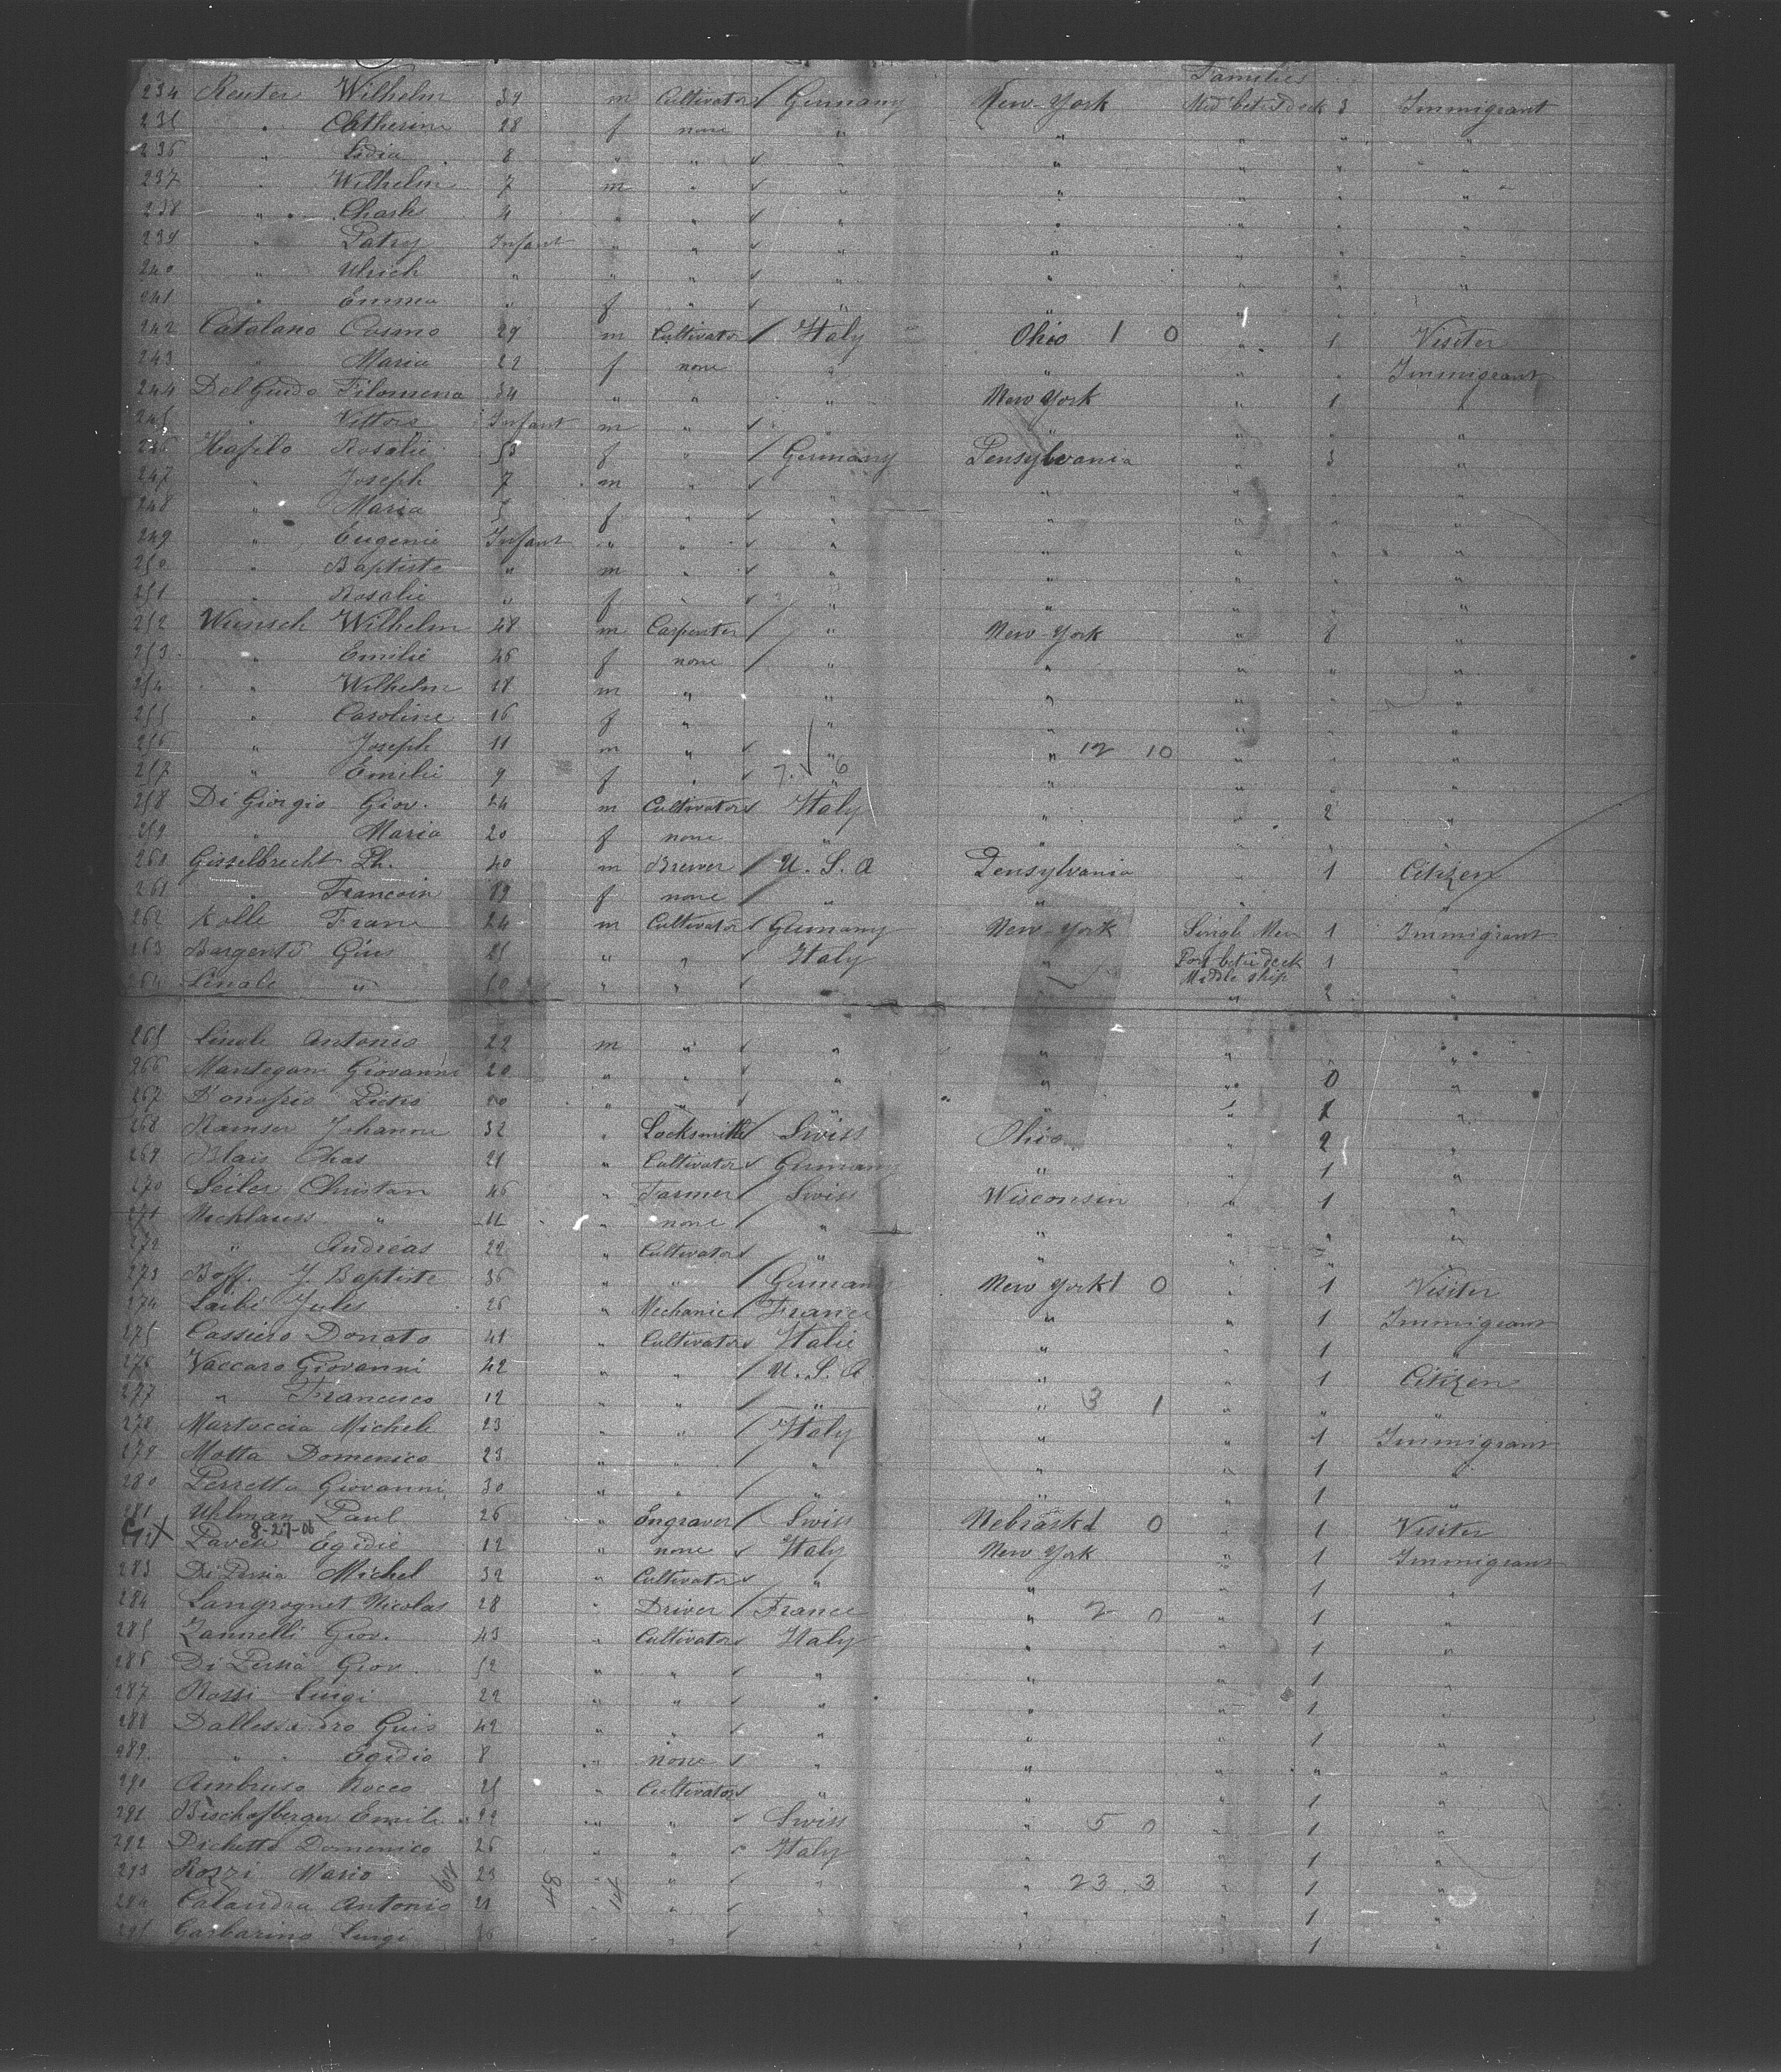 Families
234 Reuter Wilhelm 39 m Cultivator / Germany New-York Mid betw deck 3 Immigrant
235 " Catherine 28 f none " " " " "
236 " Lidia 8 " " ✓ " " " " "
237 " Wilhelm 7 m " ✓ " " " " "
238 " Charls 4 " " ✓ " " " " "
239 " Infant " " ✓ " " " " "
240 " Ulrich " " " ✓ " " " " "
241 " Emma " f " ✓ " " " " "
242 Catalano Cosmo 29 m Cultivator / Italy Ohio 1 0 " 1 Visiter
243 " Maria 22 f none " " " " Immigrant
244 Del Guido Filomena 34 " " " New York " 1 "
245 " Vittore Infant m " ✓ " " " " "
246 Rosalie 53 f " / Germany Pensylvania " 3 "
247 " Joseph 7 m " ✓ " " " " "
248 " Maria 5 f " ✓ " " " " "
249 " Eugenie Infant " " ✓ " " " " "
250 " Baptiste " m " ✓ " " " " "
251 " Rosalie " f " ✓ " " " " "
252 Wunsch Wilhelm 48 m Carpenter / " New-York " 8 "
253 " Emilie 46 f none / " " " " "
254 " Wilhelm 18 m " " " " " "
255 " Caroline 16 f " " " " " "
256 " Joseph 11 m " ✓ " " 12 10 " " "
257 " Emilie 9 f " ✓ 7. 6 " " " "
258 Di Giorgio Giov. 24 m Cultivator ✓ Italy " " 2 "
259 " Maria 20 f none " " " " "
260 Gisselbrecht Ph. 40 m Brewer / U. S. A Pensylvania " 1 Citizen
261 " Francoin 19 f none / " " " "
262 Kolle Franc 24 m Cultivator / Germany New-York Single Men 1 Immigrant
263 Bargenti Gius 25 " " ✓ Italy " Port betw deck 1 "
Middle ship
264 Linale " " " ✓ " 2 "
265 Linale Antonio 22 m " ✓ " " " " "
266 Mantegani Giovanni 20 " " ✓ " " " 0 "
267 Pietro " " ✓ " " 1 "
268 Ramser Johann 32 " Locksmith / Swiss Ohio " 2 "
269 Blais Chas 21 " Cultivator ✓ Germany " " 1 "
270 Seiler Christan 46 " Farmer / Swiss Wisconsin " 1 "
271 Nicklauss " 11 " none / " " " " "
272 " Andreas 22 " Cultivator ✓ " " " " "
273 Boff. J. Baptiste 36 " " / Germany New York 1 0 " 1 Visiter
274 Laibé Jules 26 " Mechanic / France " " 1 Immigrant
275 Cassiero Donato 41 " Cultivator ✓ Italie " " 1 "
276 Vaccaro Giovanni 42 " " / U. S. A. " " 1 Citizen
277 " Francesco 12 " " / " " 3 1 " " "
278 Martuccia Michele 23 " " / Italy " " 1 Immigrant
279 Motta Domenico 23 " " / " " " 1 "
280 Perretta Giovanni 30 " " / " " " 1 "
281 Uhlman Paul 26 " Engraver / Swiss Nebraska 1 0 " 1 Visiter
8-27-06
Egidie 12 " none ✓ Italy New York " 1 Immigrant
283 Di Persia Michel 32 " Cultivator ✓ " " " 1 "
284 Langrognet Nicolas 28 " Driver / France " 2 0 " 1 "
285 Zannelli Giov. 43 " Cultivator ✓ Italy " " 1 "
286 Di Persia Giov. 52 " " ✓ " " " 1 "
287 Rossi Luigi 22 " " ✓ " " " 1 "
288 Dallessandro Guis 42 " " ✓ " " " 1 "
289 " " Egidio 8 " none ✓ " " " " "
290 Ambruso Rocco 25 " Cultivator ✓ " " " 1 "
291 Bischofberger Emile 22 " " ✓ Swiss " 5 0 " 1 "
292 Dichetto Domenico 26 " " ✓ Italy " " 1 "
293 Rozzi Mario 23 " " ✓ " " 23 3 " 1 "
294 Calandra Antonio 21 " " ✓ " " " 1 "
295 Garbarino Luigi 26 " " ✓ " " " 1 "